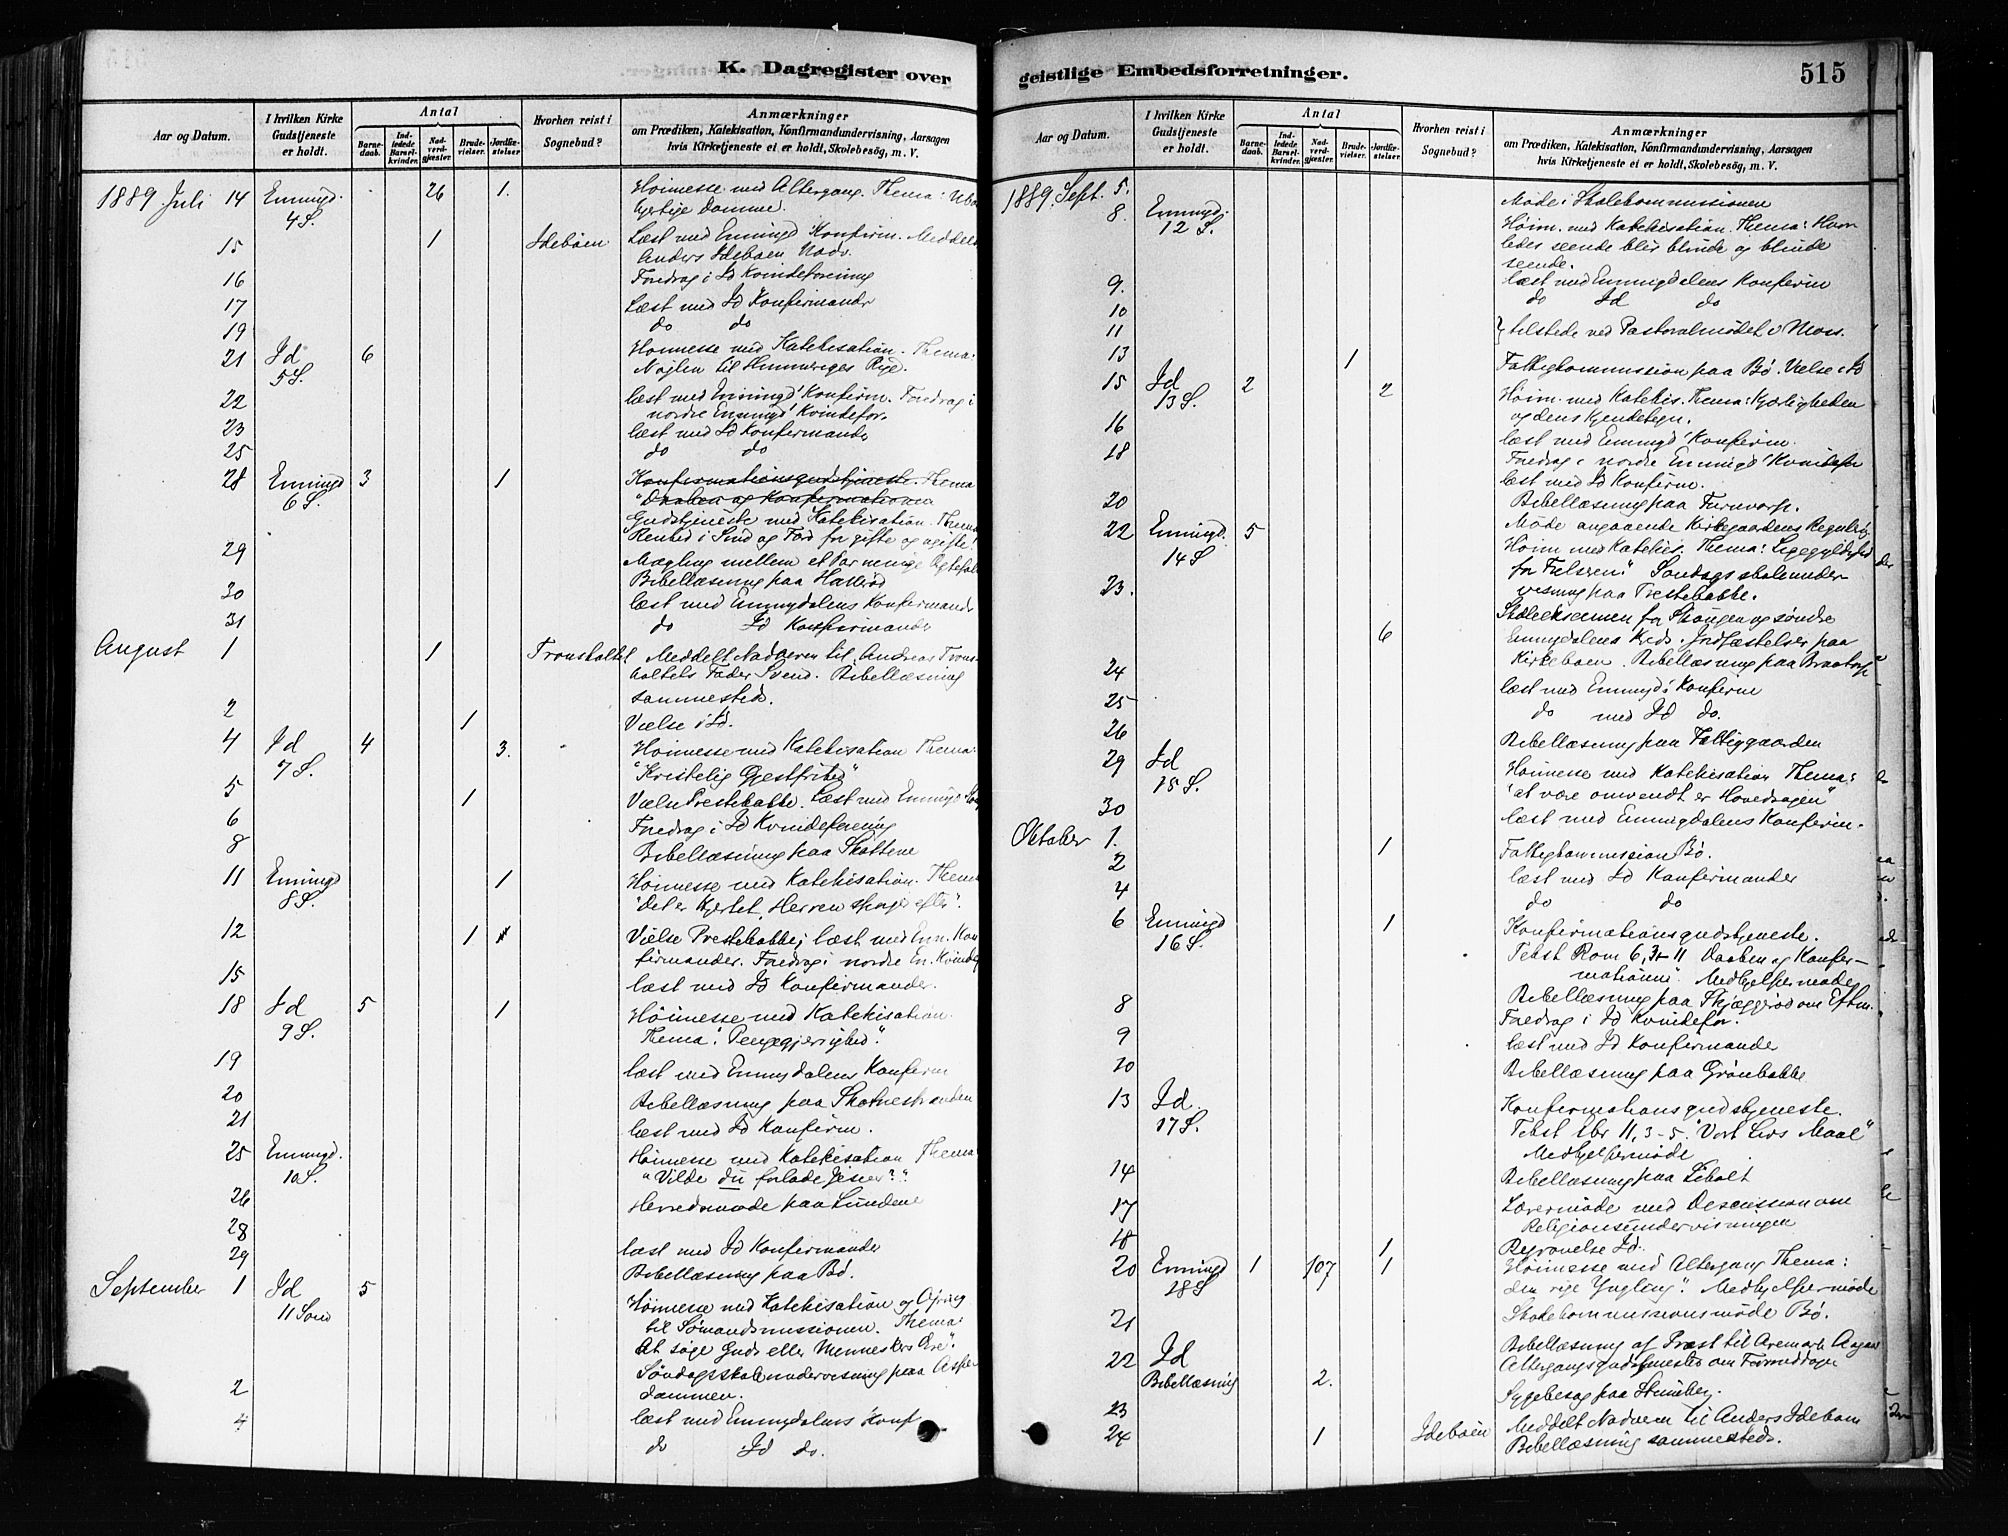 K. Dagregister over
Aar og Datum.
I hvilken Kirke Gudstjeneste er holdt.
Antal
Barnedaab.
Indledede Barselkvinder.
Nadverdgjæster.
Brudevielser.
Jordfæstelser
Hvorhen reist i Sognebud?
Anmærkninger
om Prædiken, Katekisation, Konfirmandundervisning, Aarsagen
hvis Kirketjeneste ei er holdt, Skolebesög, m. V.
1889 Juli 14 Enningd. 26 1. Høimesse med Altergang. Thema:
4 S.
15 1 Idebøen Læst med Enningd Konfirm. Meddelt
Anders Idebøen Nadv.
16 Foredrag i Id Kvindeforening
17 Læst med Id Konfirmander
19 do do
21 Id 6 Høimesse med Katekisation. Thema:
5 S. Nøglen til Himmeriges Rige.
22 læst med Enningd' Konfirm. Foredrag i
nordre Enningd' Kvindefor.
23 læst med Id Konfirmander
25 do do
28 Enningd 3 1 Konfirmationsgudstjeneste. Thema
6 S. "Daaben og Konfirmationen
Gudstjeneste med Katekisation. Thema
Renhed i Sind og Færd for gifte og ugifte!
29 Mægling mellem et Par uenige Ægtefolk
Bibellæsning paa Hallerød
30 læst med Enningdalens Konfirmander
31 do Id Konfirmander
August 1 1 Tronsholtet Meddelt Nadveren til Andreas Trons-
holtets Fader Svend. Bibellæsning
sammesteds.
2 1 Vielse i Id.
4 Id 4 3. Høimesse med Katekisation Thema:
7 S. "Kristelig Gjestfrihed"
5 1 Vielse Prestebakke. Læst med Enningd
6 Foredrag i Id Kvindeforening
8 Bibellæsning paa Skottene
11 Enningd 1 Høimesse med Katekisation. Thema
8 S. "Det er Hjertet, Herren spørger efter".
12 1 Vielse Prestebakke; læst med Enn. Kon
firmander. Foredrag i nordre En. Kvindef
15 læst med Id Konfirmander.
18 Id 5 1 Høimesse med Katekisation.
9 S. Thema: Pengegjerrighed".
19 læst med Enningdalens Konfirm
20 Bibellæsning paa Skotnestranden
21 læst med Id Konfirm.
25 Enningd. Høimesse med Katekisation Thema:
10 S. "Vilde du forlade Jesus?"
26 Herredsmøde paa Lundene
28 læst med Id Konfirmander
29 Bibellæsning paa Bø.
September 1 Id 5 Høimesse med Katekisation og Ofring
11 Sønd til Sømandsmissionen. Thema:
At søge Guds eller Menneskers Ære".
Søndagsskoleundervisning paa Asper
dammen.
2 læst med Enningdalens Konf
4 do Id do.
geistlige Embedsforretninger.
515
Aar og Datum.
I hvilken Kirke Gudstjeneste er holdt.
Antal
Barnedaab.
Indledede Barselkvinder.
Nadverdgjæster.
Brudevielser.
Jordfæstelser
Hvorhen reist i Sognebud?
Anmærkninger
om Prædiken, Katekisation, Konfirmandundervisning, Aarsagen
hvis Kirketjeneste ei er holdt, Skolebesög, m. V.
1889. Sept. 5. Møde i Skolekommissionen
8. Enningd. Høim. med Katekisation. Thema: Hvor
12 S. ledes seende blir blinde og blinde
seende.
9. læst med Enningdalens Konfirm
10 do Id do
11 } tilstede ved Pastoralmødet i Moss.
13 1 Fattigkommission paa Bø. Vielse i Id
15 Id 2 2 Høim. med Katekis. Thema: Kjærligheden
13 S. og dens Kjendetegn.
16 læst med Enningd' Konfirm.
18 Foredrag i nordre Enningd' Kvindefor
læst med Id Konfirm.
20 Bibellæsning paa
22 Enningd. 5 Møde angaaende Kirkegaardens Reguler.
14 S Høim med Katekis. Thema: Ligegyldighed
for Frelsen". Søndagsskoleunder-
visning paa Prestebakke.
23. Skoleeksamen for Skaugen og søndre
6 Enningdalens Kreds. Jordfæstelser paa
Kirkebøen. Bibellæsning paa
24 læst med Enningd's Konfirm
25 do med Id do.
26 Bibellæsning paa Fattiggaarden
29 Id Høimesse med Katekisation Thema:
15 S. "at være omvendt er Hovedsagen"
30 læst med Enningdalens Konfirm.
Oktober 1. 1 Fattigkommission Bø.
2 læst med Id Konfirmander
4 do do
6 Enningd 1 Konfirmationsgudstjeneste.
16 S. Tekst Rom 6, 3-11 Daaben og Konfir-
mationen". Medhjelpermøde
Bibellæsning paa Skjæggerød om Eftm.
8 Foredrag i Id Kvindefor.
9 læst med Id Konfirmander
10 Bibellæsning paa Grønbakke
13 Id Konfirmationsgudstjeneste.
17 S. Tekst Ebr 11, 3-5. "Vort Livs Maal"
Medhjelpermøde
14 Bibellæsning paa Liholt
17 Lærermøde med Descussion om
Religionsundervisningen
18 1 Begravelse Id.
20 Enningd 1 107 1 Høimesse med Altergang Thema:
18 S den rige Yngling". Medhjelpermøde
21 Skolekommissionsmøde Bø.
22 Id Bibellæsning af Præst til Aremark
Bibellæsning 2. Altergangsgudstjeneste om Formiddagen
23 Sygebesøg paa
24 1 Idebøen Meddelt Nadveren til Anders Idebøen
Bibellæsning sammesteds.